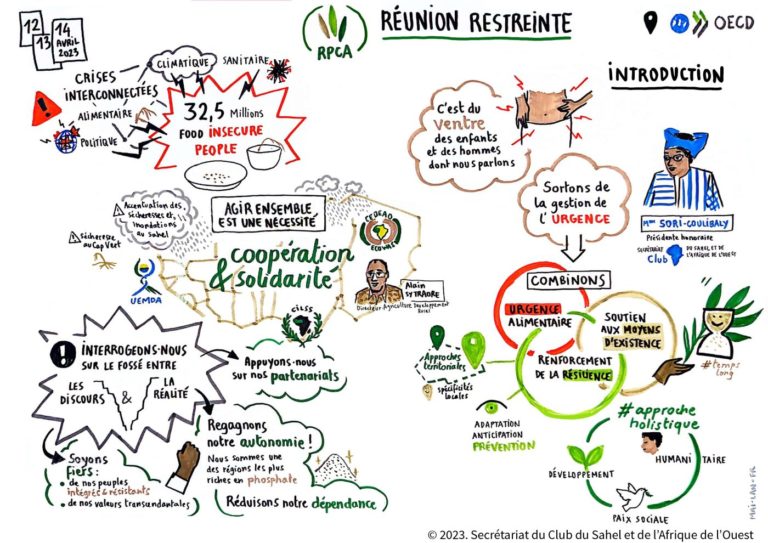 12
13
14
AVRIL
2023
RPCA
RÉUNION RESTREINTE
OECD
CRISES
INTERCONNECTÉES
CLIMATIQUE
SANITAIRE
ALIMENTAIRE
POLITIQUE
32,5 Millions
FOOD INSECURE
PEOPLE
INTRODUCTION
C'est du
ventre
des enfants
et des hommes
dont nous parlons
Sortons de
la gestion de
l'URGENCE
Mme SORI-COULIBALY
Présidente honoraire
SECRÉTARIAT
Club
DU SAHEL ET DE
L'AFRIQUE DE L'OUEST
Accentuation des
sécheresses et
inondations
au Sahel
Sécheresse
au Cap Vert
AGIR ENSEMBLE
EST UNE NÉCESSITÉ
CEDEAO
ECOWAS
coopération
& solidarité
UEMOA
Alain
SY TRAORE
Directeur Agriculture Développement
Rural
CILSS
COMBINONS
URGENCE
ALIMENTAIRE
SOUTIEN
AUX MOYENS
D'EXISTENCE
RENFORCEMENT
DE LA RÉSILIENCE
#temps
long
Approches
territoriales
spécificités
locales
ADAPTATION
ANTICIPATION
PRÉVENTION
#approche
holistique
HUMANITAIRE
DÉVELOPPEMENT
PAIX SOCIALE
INTERROGEONS-NOUS
SUR LE FOSSÉ ENTRE
LES
DISCOURS
&
LA
RÉALITÉ
Appuyons-nous
sur nos partenariats
Regagnons
notre autonomie !
Nous sommes une
des régions les plus
riches en phosphate
Réduisons notre dépendance
Soyons
fiers :
• de nos peuples
intégrés & résistants
• de nos valeurs transcendantales
© 2023. Secrétariat du Club du Sahel et de l'Afrique de l'Ouest